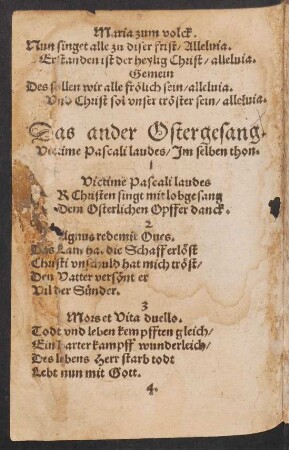 Maria zum volck.
Nun singet alle zu diser frist/ Alleluia.
Erstanden ist der heylig Christ/ alleluia.
Gemein
Des sollen wir alle frölich sein/alleluia.
Vnd Christ sol vnser tröster sein/ alleluia.
Das ander Ostergesang.
Victime Pascali laudes/ Im selben thon.
1
Victime Pascali laudes
R Christen singt mit lobgesang
Dem Osterlichen Opffer danck.
2
Agnus redemit Oues.
Das Lam ha. die Schaff erlöst
Christi vnschuld hat mich tröst/
Den Vatter versönt er
Vil der Sünder.
3
Mors et Vita duello.
Todt vnd leben kempfften gleich/
Ein harter kampff wunderleich/
Des lebens Herr starb todt
Lebt nun mit Gott.
4.